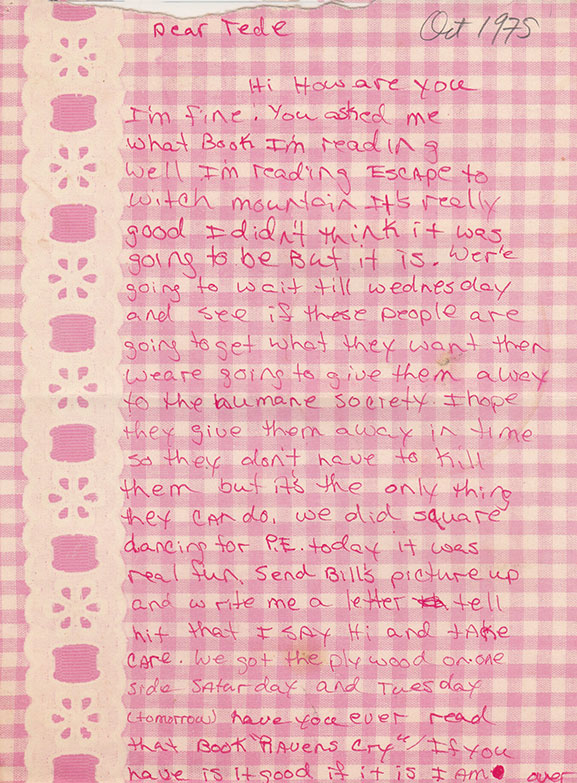 Dear Tede Oct 1975
Hi How are you
I'm fine. You asked me
what Book I'm reading
well I'm reading Escape to
witch mountain It's really
good I didn't think it was
going to be But it is. Wer'e
going to wait till wednesday
and see if these people are
going to get what they want then
weare going to give them away
to the humane society I hope
they give them away in time
so they don't have to kill
them but it's the only thing
they can do, we did square
dancing for P.E. today it was
real fun, send Bill's picture up
and write me a letter tell
hit that I say Hi and take
care. We got the plywood on one
side Saturday and Tuesday
(tomorrow) have you ever read
that Book "Ravens Cry" If you
have is it good if it is I am over